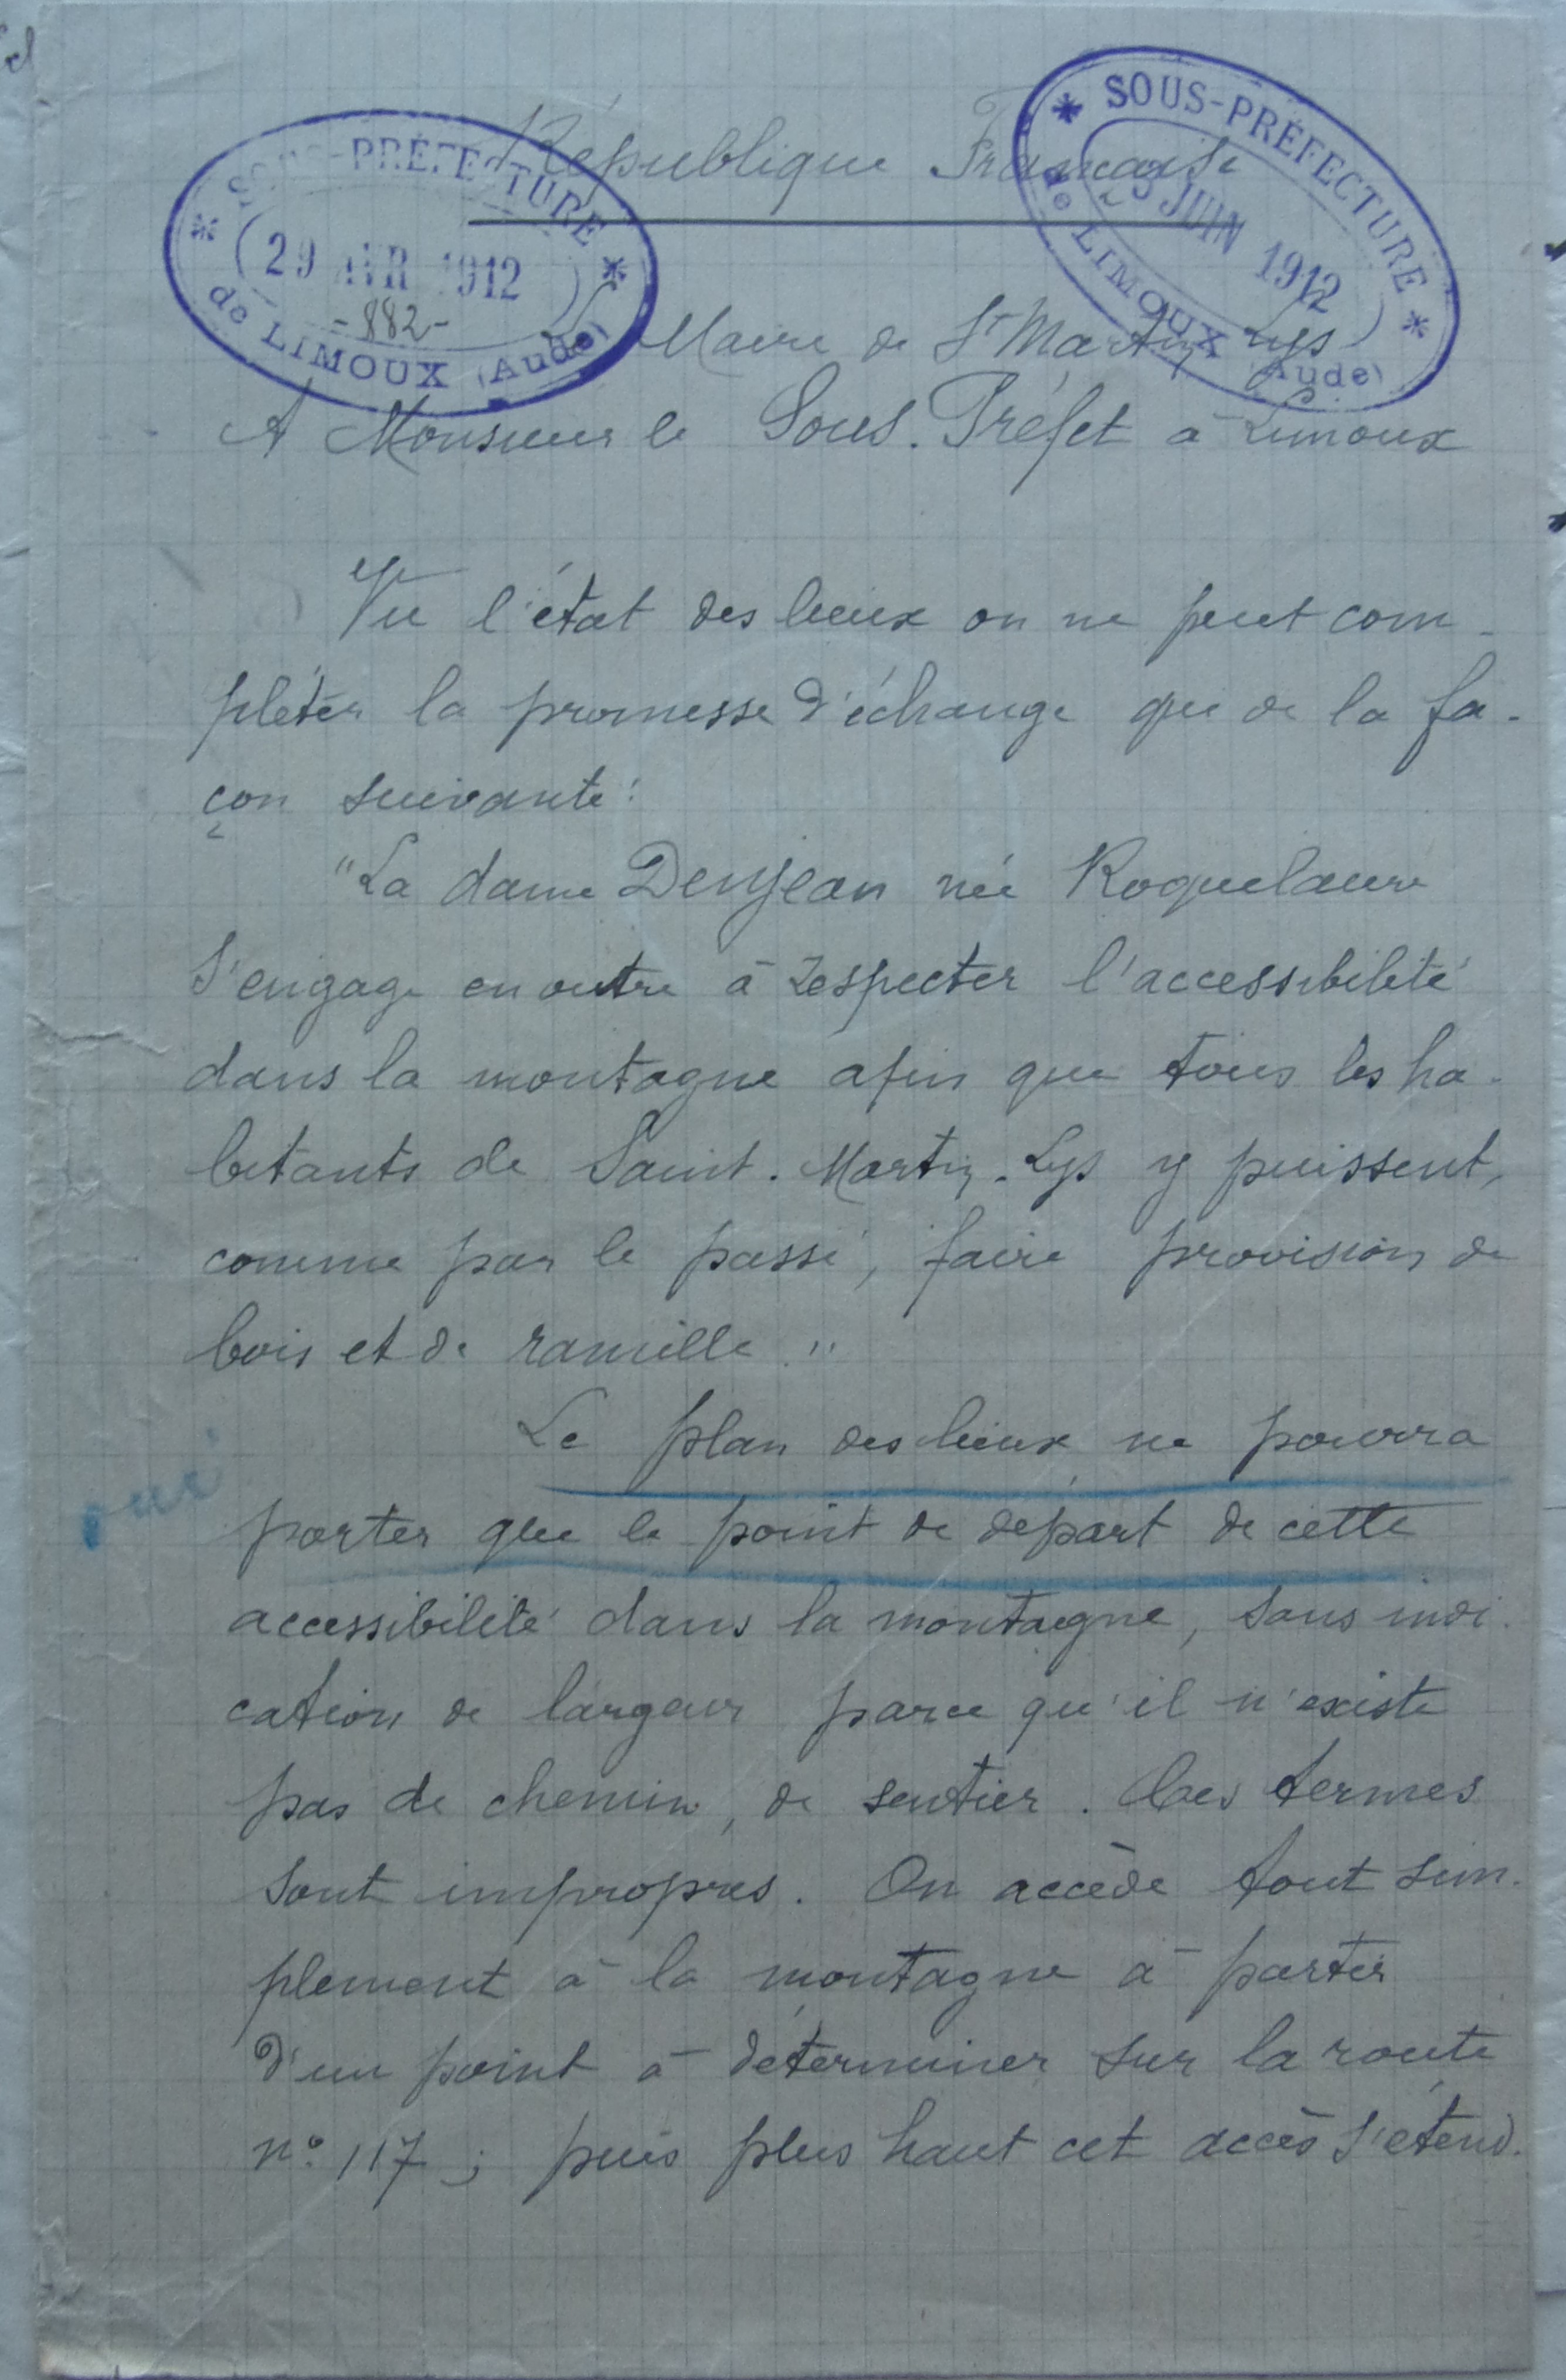 République Française
SOUS-PRÉFECTURE
29 AVR 1912
-882-
de LIMOUX (Aude)
SOUS-PRÉFECTURE
3 JUIN 1912
de LIMOUX (Aude)
Maire de St Martin Lys
A Monsieur le Sous-Préfet à Limoux
Vu l'état des lieux on ne peut com-
pléter la promesse d'échange que de la fa-
çon suivante:
"La dame Denjean née Roquelaure
s'engage en outre à respecter l'accessibilité
dans la montagne afin que tous les ha-
bitants de Saint-Martin-Lys y puissent,
comme par le passé, faire provision de
bois et de ramille."
Le plan des lieux ne pourra
oui
porter que le point de départ de cette
accessibilité dans la montagne, sans indi-
cation de largeur parce qu'il n'existe
pas de chemin, de sentier. Ces termes
sont impropres. On accède tout sim-
plement à la montagne à partir
d'un point à déterminer sur la route
n° 117; puis plus haut cet accès s'étend.